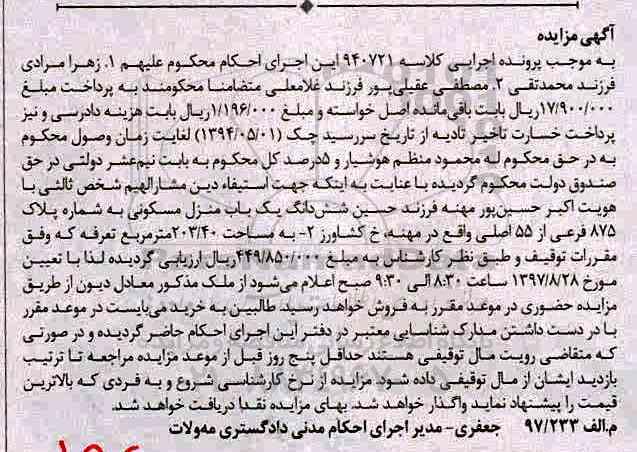 آگهی مزایده
به موجب پرونده اجرایی کلاسه ۹۴۰۷۲۱ این اجرای احکام محکوم علیهم ۱. زهرا مرادی
فرزند محمدتقی ۲. مصطفی عقیلی‌پور فرزند غلامعلی متضامنا محکومند به پرداخت مبلغ
۱۷/۹۰۰/۰۰۰ریال بابت باقی‌مانده اصل خواسته و مبلغ ۱/۱۹۶/۰۰۰ریال بابت هزینه دادرسی و نیز
پرداخت خسارت تاخیر تادیه از تاریخ سررسید چک (۱۳۹۴/۰۵/۰۱) لغایت زمان وصول محکوم
به در حق محکوم له محمود منظم هوشیار و ۵درصد کل محکوم به بابت نیم‌عشر دولتی در حق
صندوق دولت محکوم گردیده با عنایت به اینکه جهت استیفاء دین مشارالهیم شخص ثالثی با
هویت اکبر حسین‌پور مهنه فرزند حسین شش‌دانگ یک باب منزل مسکونی به شماره پلاک
۸۷۵ فرعی از ۵۵ اصلی واقع در مهنه، خ کشاورز ۲- به مساحت ۲۰۳/۴۰مترمربع تعرفه که وفق
مقررات توقیف و طبق نظر کارشناس به مبلغ ۴۴۹/۸۵۰/۰۰۰ریال ارزیابی گردیده لذا با تعیین
مورخ ۱۳۹۷/۸/۲۸ ساعت ۸:۳۰ الی ۹:۳۰ صبح اعلام می‌شود از ملک مذکور معادل دیون از طریق
مزایده حضوری در موعد مقرر به فروش خواهد رسید. طالبین به خرید می‌بایست در موعد مقرر
با در دست داشتن مدارک شناسایی معتبر در دفتر این اجرای احکام حاضر گردیده و در صورتی
که متقاضی رویت مال توقیفی هستند حداقل پنج روز قبل از موعد مزایده مراجعه تا ترتیب
بازدید ایشان از مال توقیفی داده شود. مزایده از نرخ کارشناسی شروع و به فردی که بالاترین
قیمت را پیشنهاد نماید واگذار خواهد شد. بهای مزایده نقدا دریافت خواهد شد.
م.الف ۹۷/۲۳۳ جعفری- مدیر اجرای احکام مدنی دادگستری مه‌ولات